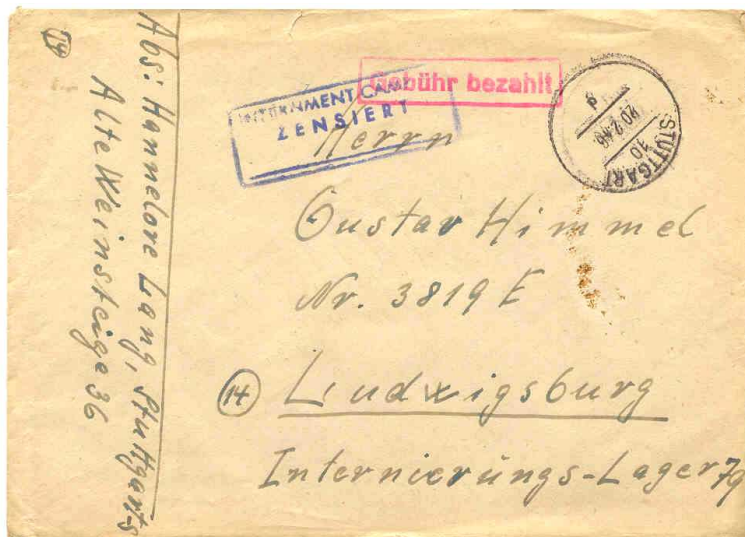 Abs: Hannelore Lang, Stuttgart-S
Alte Weinsteige 36
14
INTERNMENT CAMP
ZENSIERT
Gebühr bezahlt
STUTTGART
10
20.2.46
Herrn
Gustav Himmel
Nr. 3819 E
14 Ludwigsburg
Internierungs-Lager 79